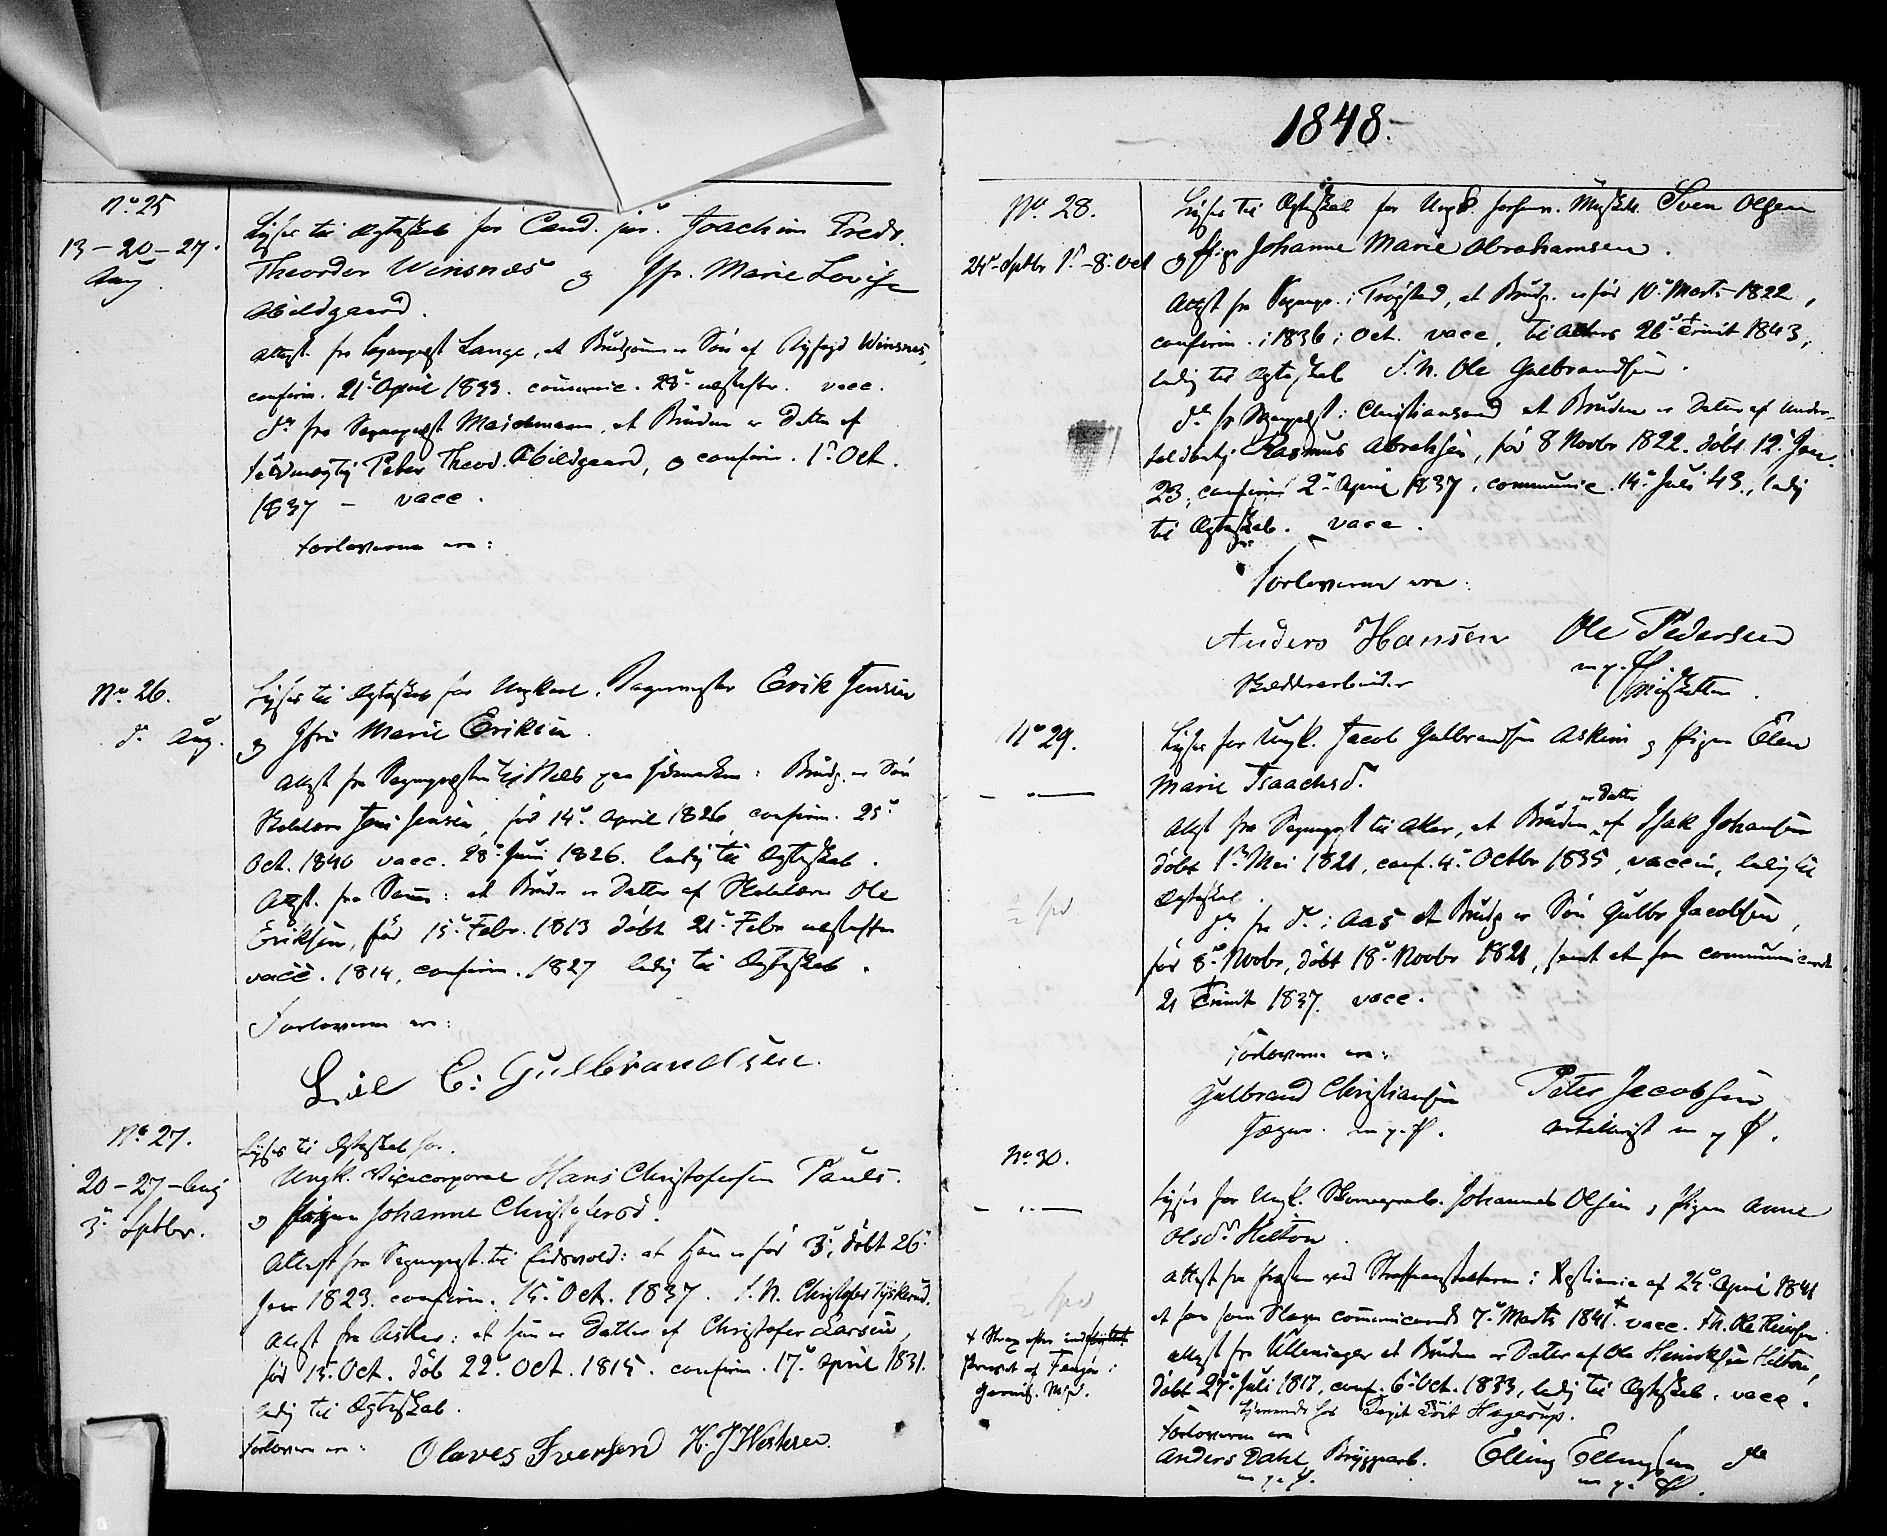 No 25
13 - 20 - 27.
Aug.
Lyses til Ægteskab for Cand. jur. Joachim Fredr.
Theordor Winsnes og Jfr. Marie Lovise
Abildgaard.
Attest fra Sogneprest Lange, at Brudgommen er Søn af Winsnes,
confirm. 21de April 1833. communic. 28de næstefter. vacc.
do fra Sogneprest Maschmann, at Bruden er Datter af
Peter Theod. Abildgaard, og confirm. 1ste Oct.
1837 - vacc.
Forloverne ere:
No 26.
d. Aug.
Lyses til Ægteskab for Ungkarl, Bagermester Erik Jensen
og Jfru Marie Eriksen.
Attest fra Sognepresten paa Hedemarken: Brudg. er Søn
Jens Jensen, fød 14de April 1826, confirm. 25de
Oct. 1840 vacc. 28de Juni 1826. ledig til Ægteskab.
Attest. fra Samme: at Bruden er Datter af Ole
Eriksen, fød 15de Febr. 1813 døbt 21de Febr næstefter
vacc. 1814, confirm. 1827 ledig til Ægteskab.
Forloverne ere:
E. Gulbrandsen.
No 27.
20 - 27 - Aug
3de Septbr.
Lyses til Ægteskab for.
Ungk. Vicecorporal Hans Christofersen Pauls.
og Pigen Johanne Christofersd.
Attest fra Sogneprest. til Eidsvold: at Han er fød 3de, døbt 26de
Jan 1823. confirm. 15de Oct. 1837. S. N. Christofer Tyskerud.
Attest fra Asker: at hun er Datter af Christofer Larsen,
fød 15. Oct. døb 22de Oct. 1815. confirm. 17de April 1831.
ledig til Ægteskab.
Forloverne ere: Olaves Iversen H. J. Westeren.
1848.
No 28.
24de Septbr 1ste - 8de Oct
Lyses til Ægteskab for Ungk. Musket. Sven Olsen
og Pige Johanne Marie Abrahamsen.
Attest fra Sognepr. i Trøgstad, at Brudg. er fød 10de Marts 1822,
confirm. i 1836 i Oct. vacc, til Alters 26de Trinit 1843,
ledig til Ægteskab S. N. Ole Gulbrandsen.
do fr Sogneprest i Christiansand at Bruden er Datter af Under-
Rasmus Abrahsen, fød 8 Novbr 1822. døbt 12te Jan.
23, confirm 2den April 1837, communic. 14de Juli 43, ledig
til Ægteskab. vacc.
Forloverne ere:
Anders Hansen Ole Pedersen
m. p. P.
No 29.
Lyses for Ungk. Jacob Gulbrandsen Askim og Pigen Elen
Marie Isaachsd.
Attest fra Sogneprst til Aker, at Bruden er Datter af Isak Johansen
døbt 1ste Mai 1821, conf. 4de Octbr 1835, vaccin, ledig til
Ægteskab.
do fra do i Aas at Brudg er Søn Gulbr Jacobsen,
fød 8de Novbr, døbt 18de Novbr 1821, samt at han communicerede
21 Trinit 1837. vacc.
1/2 Spd.
Forloverne ere:
Gulbrand Christiansen Peter Jacobsen
Jæger. m. p. P. Artillerist m p P.
No 30.
Lyses for Ungk. Johannes Olsen og Pigen Anne
Olsdr Hilton.
Attest fra Presten ved Straffeanstalterne i Xstiania af 24de April 1841
at han som Slave communicerede 7de Marts 1841. + vacc.
Attest fra Ullensager at Bruden er Datter af Ole Henriksen Hilton,
døbt 27de Juli 1817, conf. 6te Oct. 1833, ledig til Ægteskab. vacc.
tjenende hos Hagerup.
Forloverne ere
Anders Dahl Bryggearb. Elling Ellingsen do
m. p. P. m. p. P.